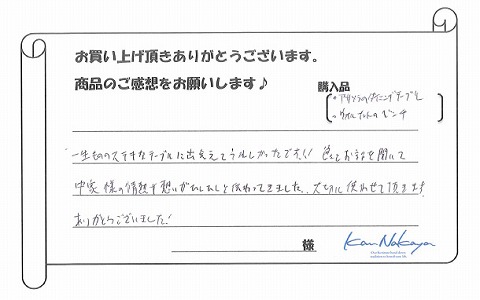 お買い上げ頂きありがとうございます。
商品のご感想をお願いします♪
購入品
のダイニングテーブル
のベンチ
一生もののステキなテーブルに出会えてうれしかったです!! 色々とお話を聞いて
中家様の情熱や想いがひしひしと伝わってきました。大切に使わせて頂きます。
ありがとうございました!
様
Kan Nakaya